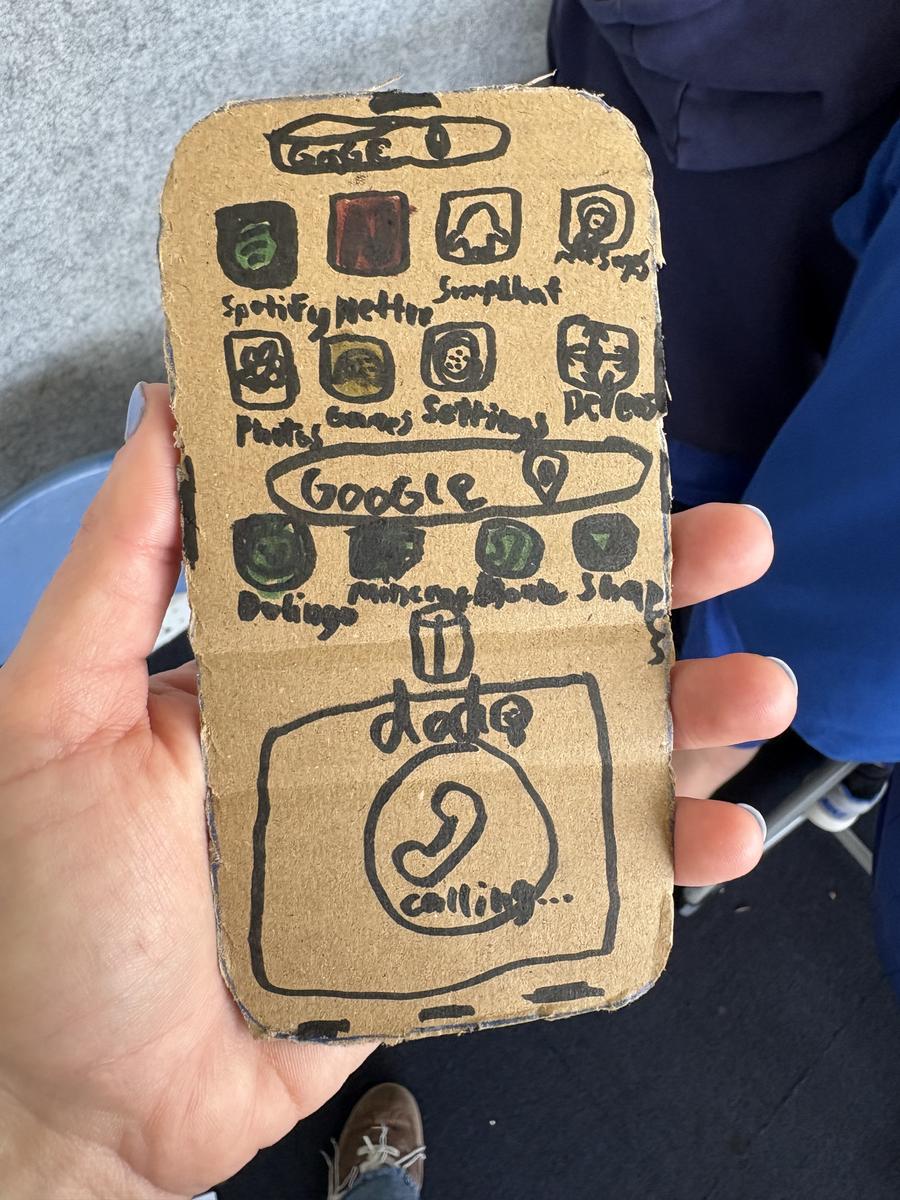 GOGLE
Spotify Netflix Snapchat
Photos Games Settings
GOOGLE
Dolingo Minecra Shap
dodo
calling...